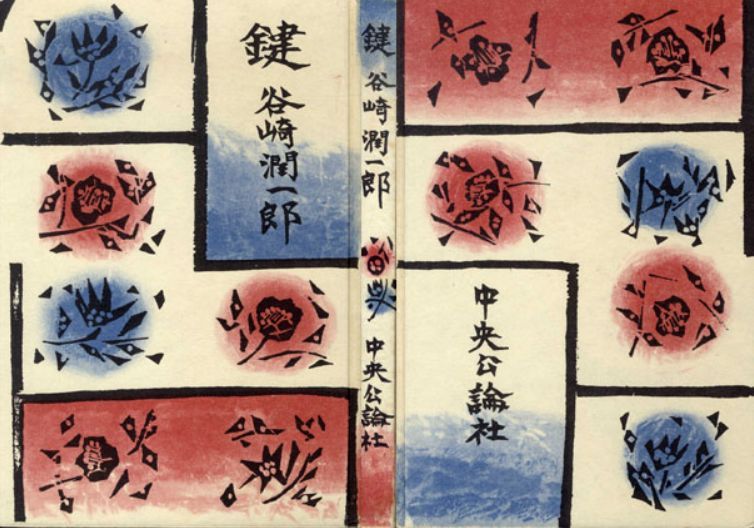 鍵
谷崎潤一郎
鍵
谷崎潤一郎
中央公論社
中央公論社